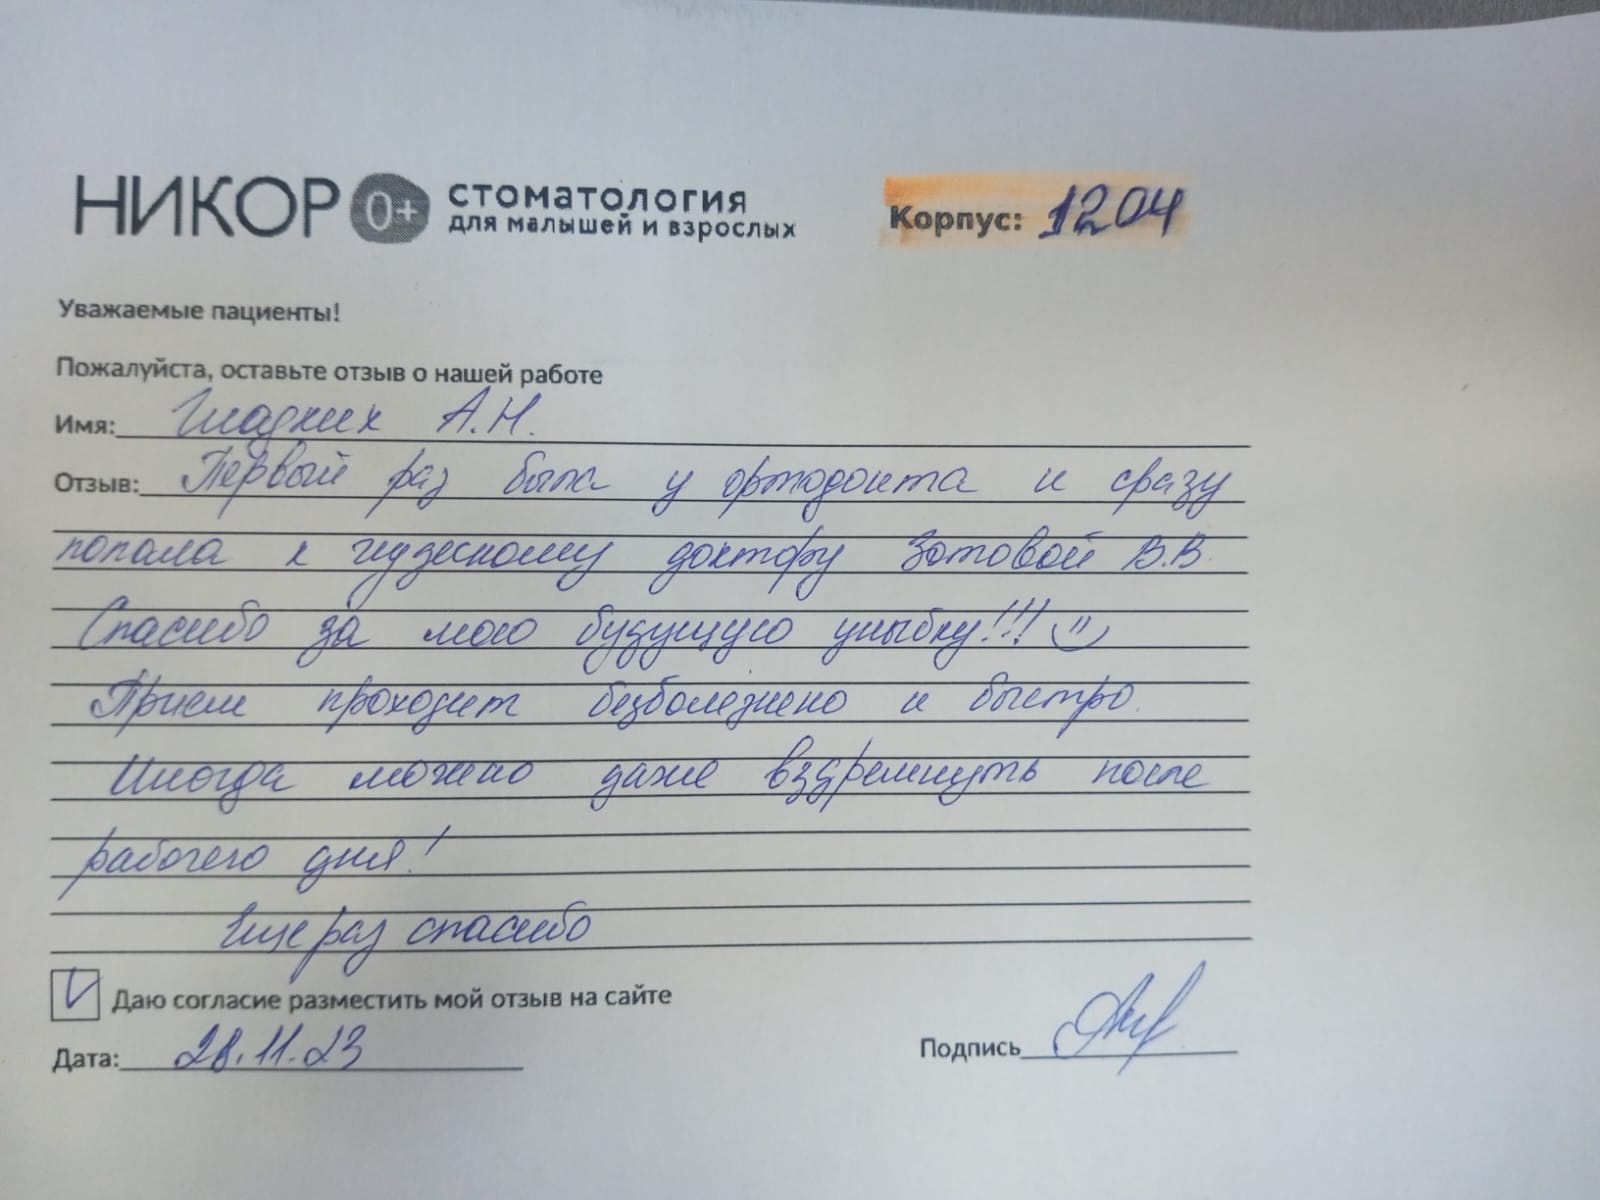 НИКОР 0+ стоматология
для малышей и взрослых
Корпус: 1204
Уважаемые пациенты!
Пожалуйста, оставьте отзыв о нашей работе
Имя: Гладких А.Н.
Отзыв: Первый раз была у ортодонта и сразу
попала к чудесному доктору Зотовой В.В.
Спасибо за мою будущую улыбку!!!
Прием проходит безболезнено и быстро.
Иногда можно даже вздремнуть после
рабочего дня!
Еще раз спасибо
Даю согласие разместить мой отзыв на сайте
Дата: 28.11.23
Подпись